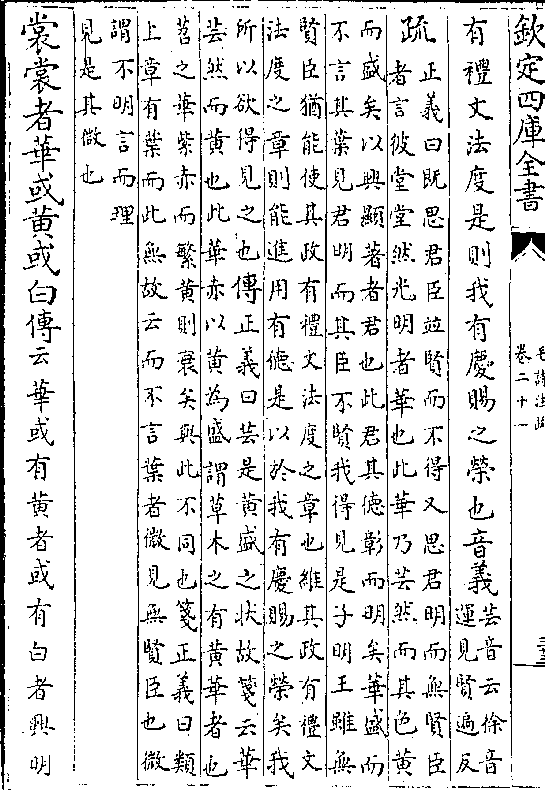 欽定四庫全書
毛詩注疏
卷二十一
有禮文法度是則我有慶賜之榮也音義芸音云徐音
運見賢遍反
疏正義曰既思君臣並賢而不得又思君明而無賢臣
者言彼堂堂然光明者華也此華乃芸然而其色黄
而盛矣以興顯著者君也此君其徳彰而明矣華盛而
不言其葉見君明而其臣不賢我得見是子明王雖無
賢臣猶能使其政有禮文法度之章也維其政有禮文
法度之章則能進用有徳是以於我有慶賜之榮矣我
所以欲得見之也傳正義曰芸是黄盛之狀故箋云華
芸然而黄也此華亦以黄為盛謂草木之有黄華者也
苕之華紫赤而繁黄則衰矣與此不同也箋正義曰類
上章有葉而此無故云而不言葉者微見無賢臣也微
謂不明言而理
見是其微也
裳裳者華或黄或白傳云華或有黄者或有白者興明